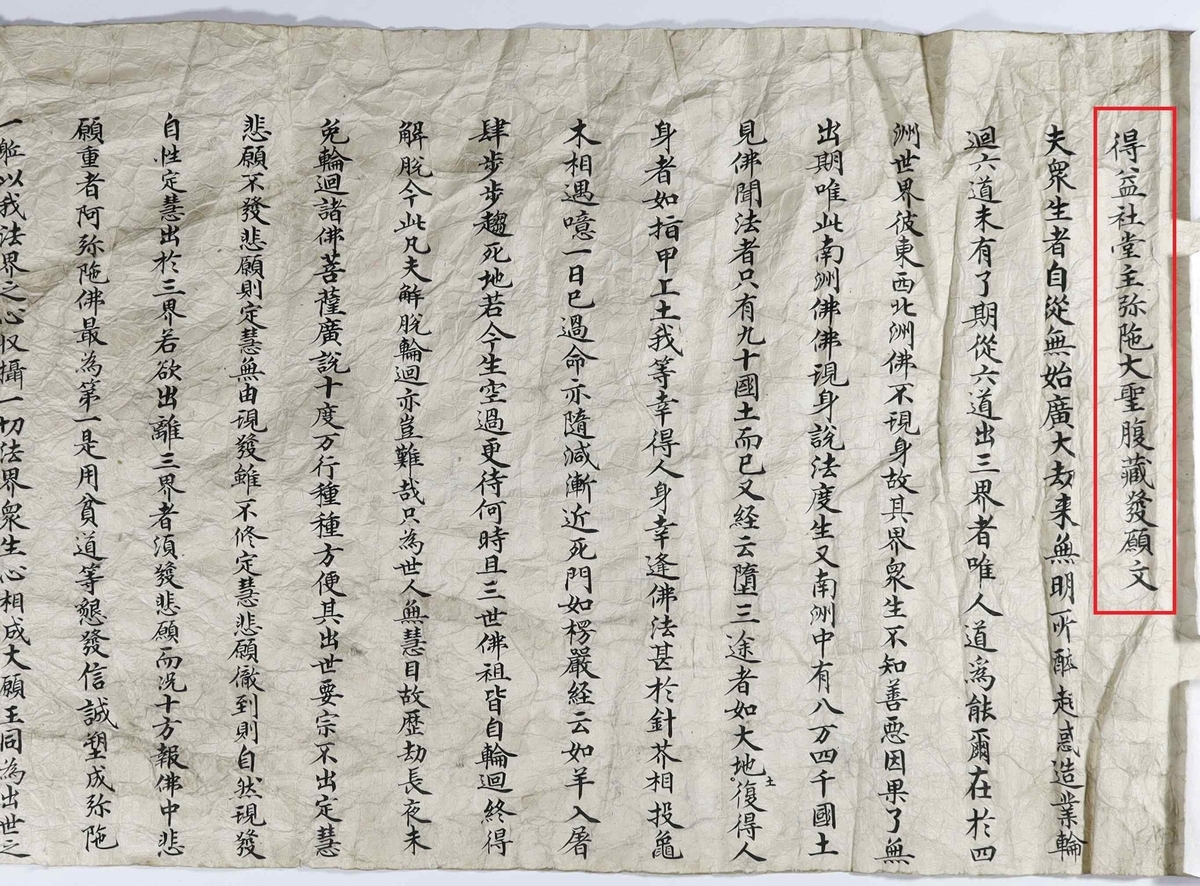 得益社堂主弥陁大聖腹藏發願文
夫衆生者自從無始廣大劫来無明所酔起惑造業輪
迴六道未有了期從六道出三界者唯人道爲能爾在於四
洲世界彼東西北洲佛不現身故其界衆生不知善惡因果了無
出期唯此南洲佛佛現身說法度生又南洲中有八万四千國土
見佛聞法者只有九十國土而已又経云墮三途者如大地土復得人
身者如指甲上土我等幸得人身幸逢佛法甚於針芥相投龜
木相遇噫一日已過命亦隨減漸近死門如楞嚴経云如羊入屠
肆步步趨死地若今生空過更待何時且三世佛祖皆自輪迴終得
解脫今此凡夫解脫輪迴亦豈難哉只為世人無慧目故歷劫長夜未
免輪迴諸佛菩薩廣說十度万行種種方便其出世要宗不出定慧
悲願不發悲願則定慧無由現發雖不修定慧悲願徹到則自然現發
自性定慧出於三界若欲出離三界者須發悲願而況十方報佛中悲
願重者阿弥陁佛最為第一是用貧道等懇發信誠塑成弥陁
一軀以我法界之心収攝一切法界衆生心相成大願王同為出世之